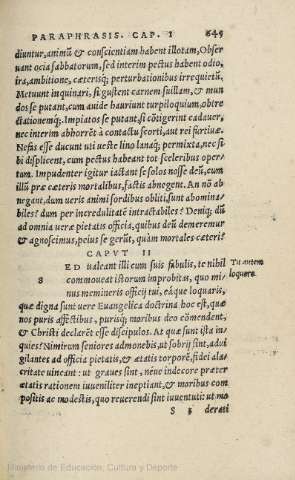 PARAPHRASIS. CAP. I 649
diuntur, animũ & conscientiam habent illotam, Obser
uant ocia sabbatorum, sed interim pectus habent odio,
ira, ambitione, cæterisq; perturbationibus irrequietũ.
Metuunt inquinari, si gustent carnem suillam, & mun
dos se putant, cum auide hauriunt turpiloquium, obtre
ctationemq;. Impiatos se putant, si cõtigerint cadauer,
nec interim abhorrẽt à contactu scorti, aut rei furtiuæ.
Nefas esse ducunt uti ueste lino lanaq; permixta, nec si
bi displicent, cum pectus habeant tot sceleribus oper-
tum. Impudenter igitur iactant se solos nosse deũ, cum
illũ præ cæteris mortalibus, factis abnegent. An nõ ab
negant, dum ueris animi sordibus obliti, sunt abomina/
biles? dum per incredulitatẽ intractabiles? Deniq; dũ
ad omnia ueræ pietatis officia, quibus deũ demeremur
& agnoscimus, peius se gerũt, quàm mortales cæteri?
CAPVT II
SED ualeant illi cum suis fabulis, te nihil
commoueat istorum improbitas, quo mi/
nus memineris officij tui, eáque loquaris,
quæ digna sunt uere Euangelica doctrina hoc est, quæ
nos puris affectibus, purisq; moribus deo cõmendent,
& Christi declarẽt esse discipulos. At quæ sunt ista in/
quies? Nimirum seniores admonebis, ut sobrij sint, adui
gilantes ad officia pietatis, & ætatis torporẽ, fidei ala/
critate uincant: ut graues sint, néue indecore præter
ætatis rationem iuueniliter ineptiant, & moribus com
positis ac modestis, quo reuerendi sint iuuentuti: ut mo
S s derati
Tu autem
loquere.
Ministerio de Educación, Cultura y Deporte